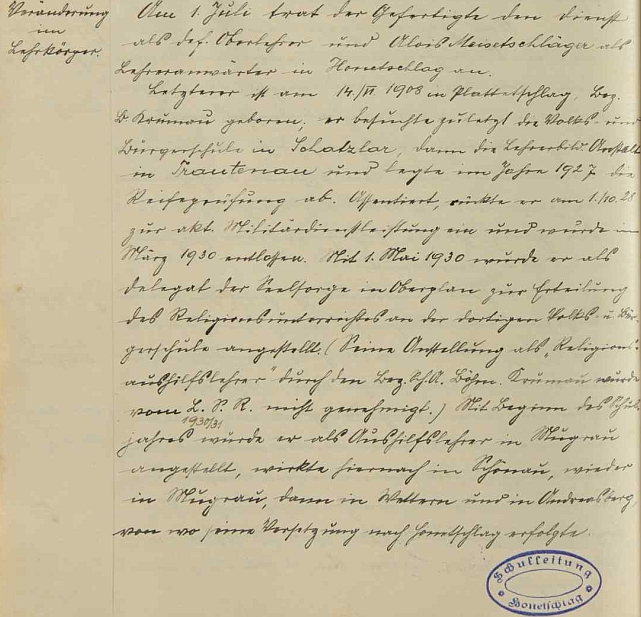 Veränderung
im
Lehrkörper.
Am 1. Juli trat der Gefertigte den Dienst
als def. Oberlehrer und Alois Meisetschläger als
Lehreranwärter in Honetschlag an.
Letzterer ist am 14./VI 1908 in Plattetschlag, Bez.
B. Krumau geboren; er besuchte zuletzt die Volks- und
Bürgerschule in Schatzlar, dann die Lehrerbild. Anstalt
in Trautenau und legte im Jahre 1927 die
Reifeprüfung ab. Assentiert, rückte er am 1./10. 28
zur akt. Militärdienstleistung ein und wurde im
März 1930 entlassen. Mit 1. Mai 1930 wurde er als
Delegat der Seelsorge in Oberplan zur Erteilung
des Religionsunterrichtes an der dortigen Volks- u. Bür-
gerschule angestellt. (Seine Anstellung als „Religions-
aushilfslehrer" durch den Bez. Sch. A. Böhm. Krumau wurde
vom L. S. R. nicht genehmigt.) Mit Beginn des Schul-
jahres 1930/31 wurde er als Aushilfslehrer in Mugrau
angestellt, wirkte hiernach in Schönau, wieder
in Mugrau, dann in Wettern und in Andreasberg,
von wo seine Versetzung nach Honetschlag erfolgte.
Schulleitung
Honetschlag